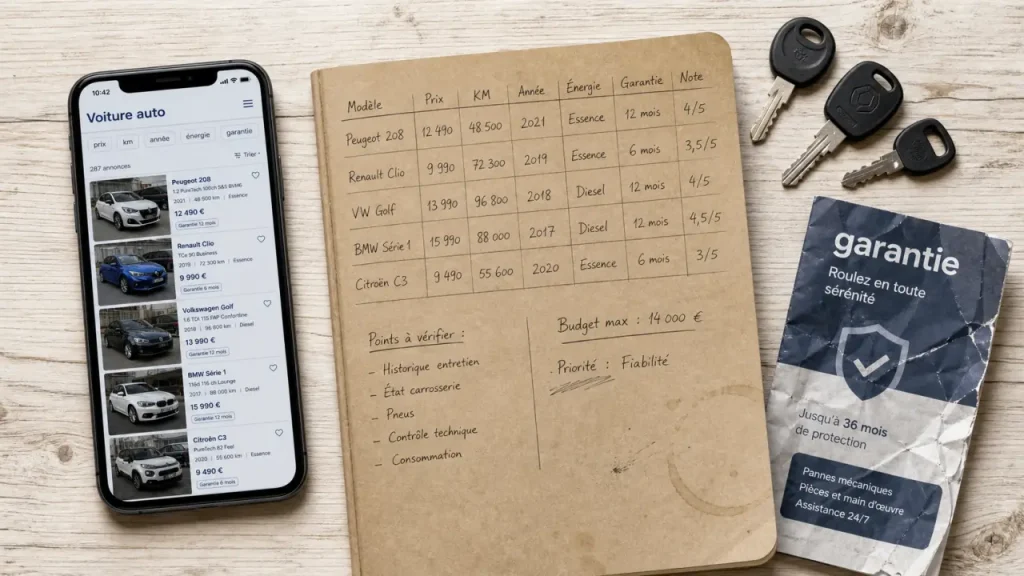 10:42
Voiture auto
prix km année énergie garantie
287 annonces
Trier
Peugeot 208
2021 | 48 500 km | Essence
12 490 €
Garantie 12 mois
Renault Clio
TCe 90 Business
2019 | 72 300 km | Essence
9 990 €
Garantie 6 mois
Volkswagen Golf
1.6 TDI 115 FAP Confortline
2018 | 96 800 km | Diesel
13 990 €
Garantie 12 mois
BMW Série 1
116d 116 ch Lounge
2017 | 88 000 km | Diesel
15 990 €
Garantie 12 mois
Citroën C3
PureTech 82 Feel
2020 | 55 600 km | Essence
9 490 €
Garantie 6 mois
Modèle Prix KM Année Énergie Garantie Note
Peugeot 208 12 490 48 500 2021 Essence 12 mois 4/5
Renault Clio 9 990 72 300 2019 Essence 6 mois 3,5/5
VW Golf 13 990 96 800 2018 Diesel 12 mois 4/5
BMW Série 1 15 990 88 000 2017 Diesel 12 mois 4,5/5
Citroën C3 9 490 55 600 2020 Essence 6 mois 3/5
Points à vérifier :
- Historique entretien
- État carrosserie
- Pneus
- Contrôle technique
- Consommation
Budget max : 14 000 €
Priorité : Fiabilité
garantie
Roulez en toute
sérénité
Jusqu'à 36 mois
de protection
Pannes mécaniques
Pièces et main d'œuvre
Assistance 24/7